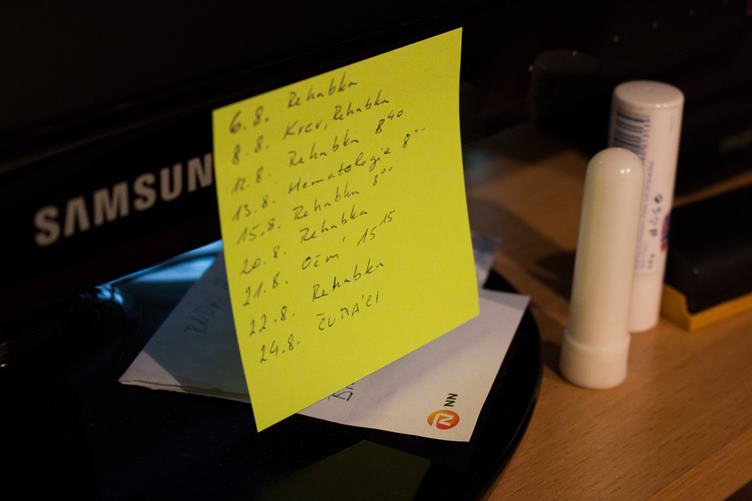 SAMSUN
6.8. Rehabka
8.8. Krev, Rehabka
12.8. Rehabka 8⁴⁰
13.8. Hematologie 8⁰⁰
15.8. Rehabka 8⁰⁰
20.8. Rehabka
21.8. Oční 15¹⁵
22.8. Rehabka
24.8. ČUMÁCI
NN